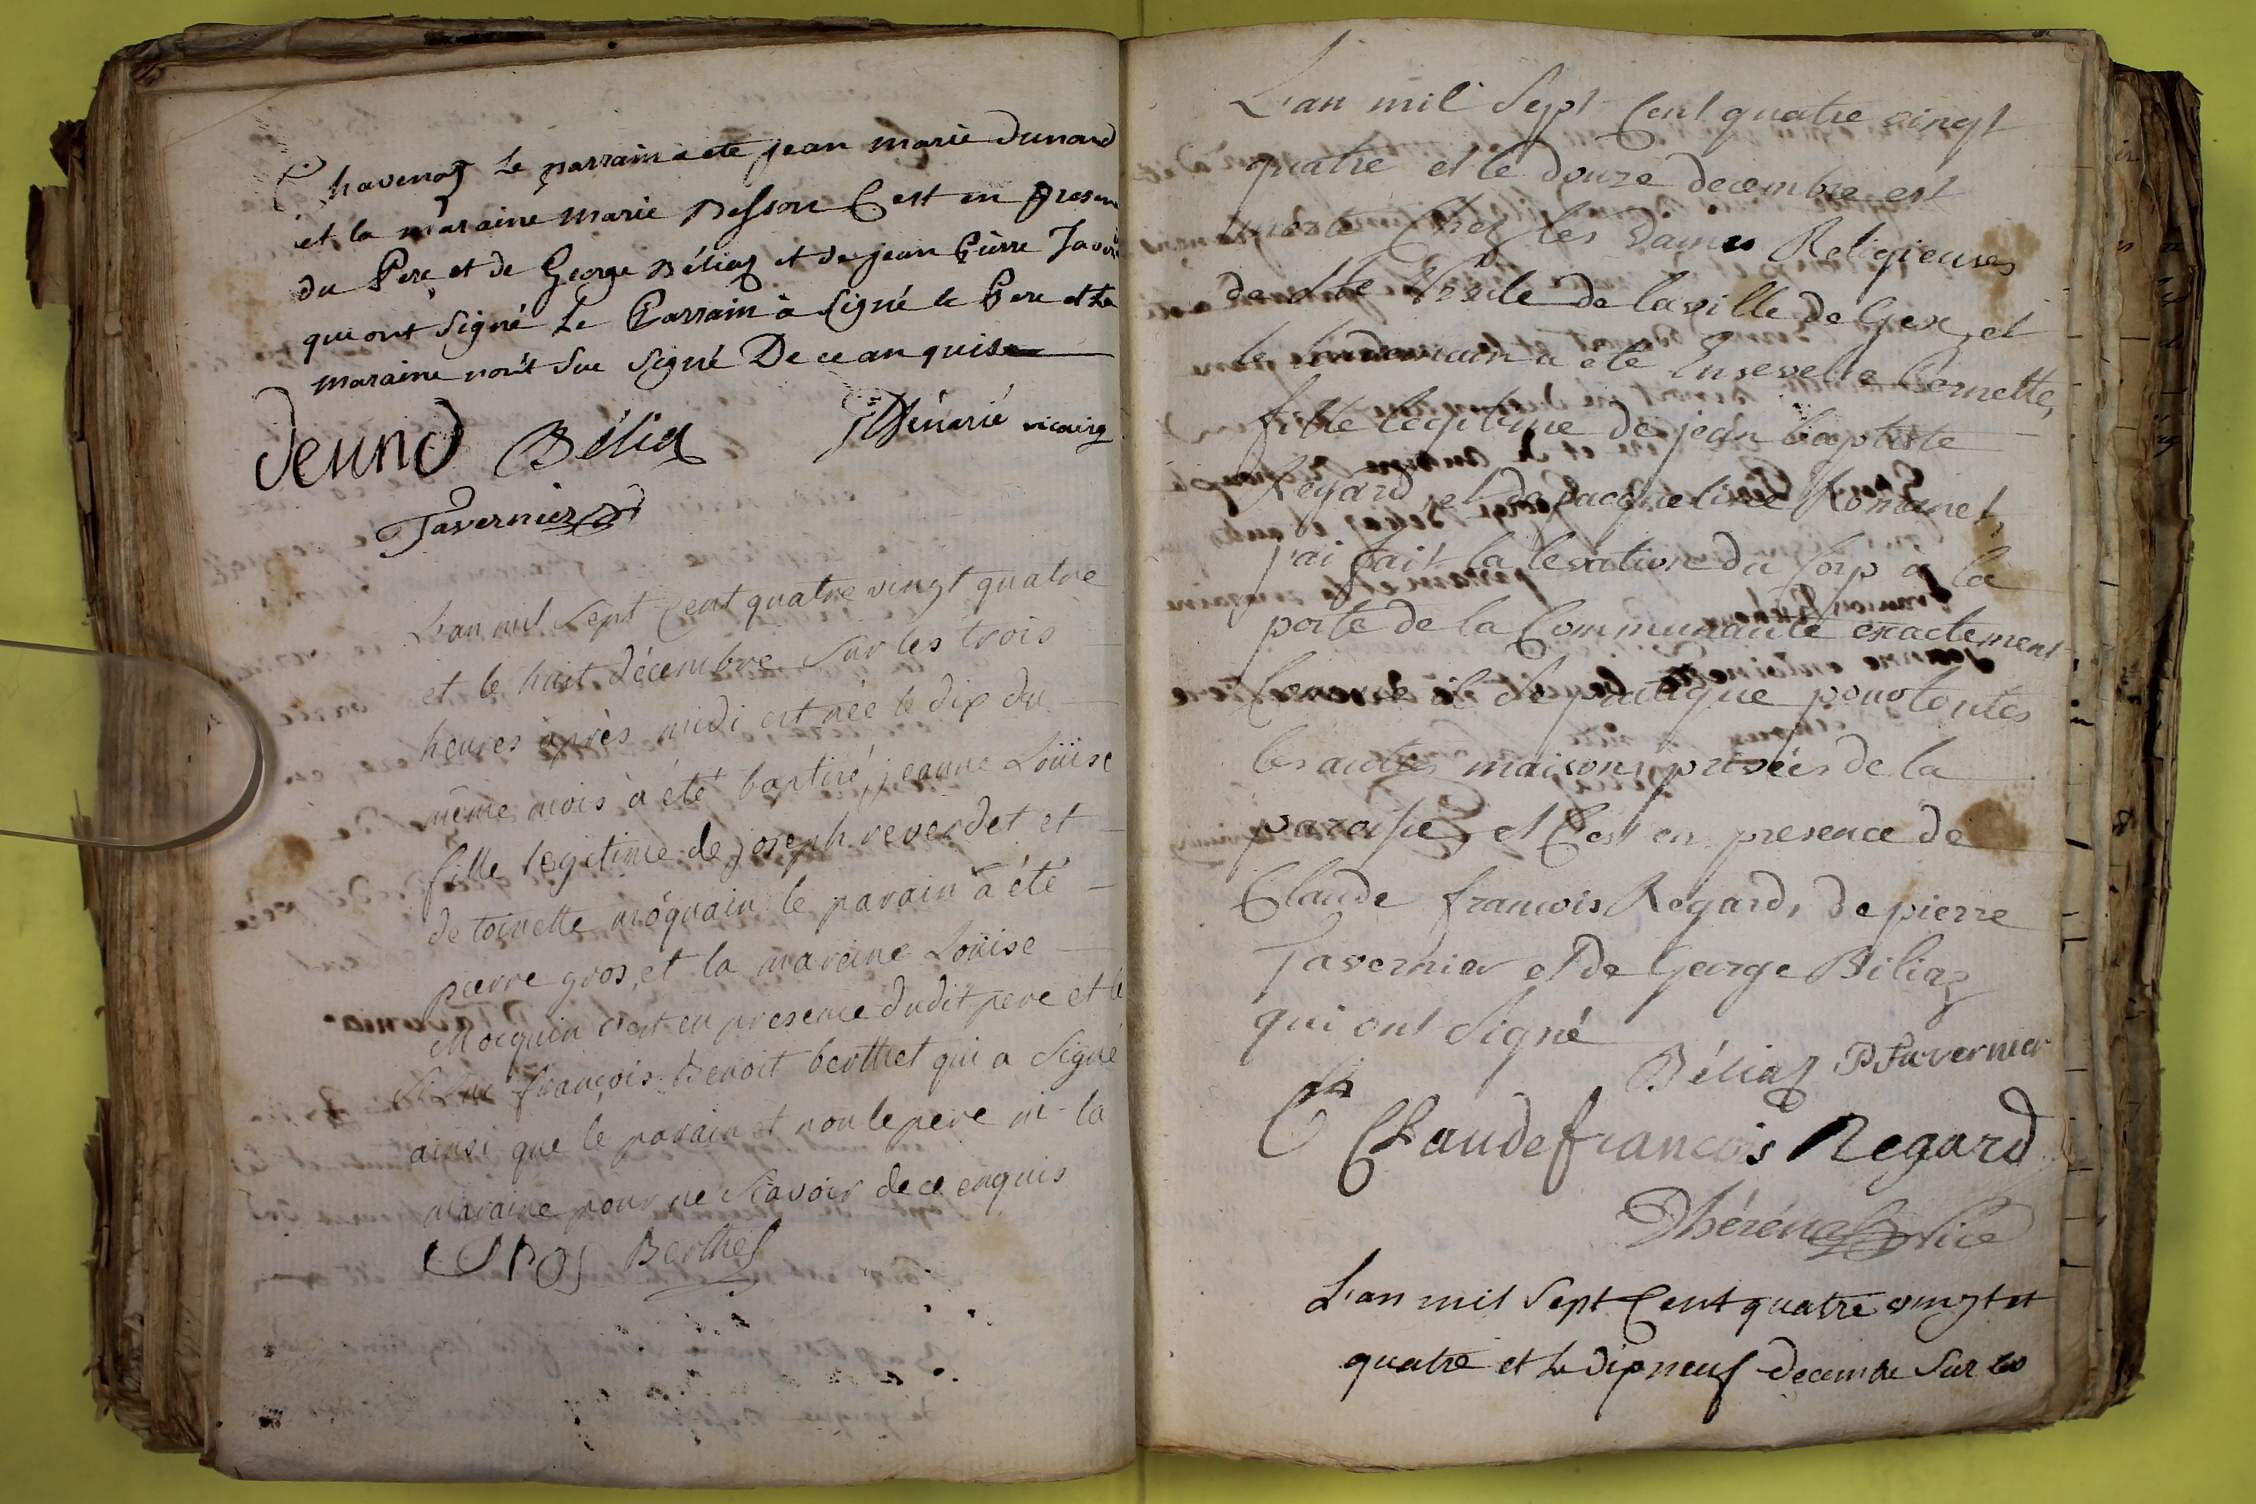 Chavenaz le parrain a été jean marie dunand
et la maraine marie Besson C'est en presen
du Pere et de George Béliaz et de jean Pierre Tavern
qui ont signé le Parrain à signé le Pere et la
maraine non't sue signé De ce an quis
Deund Béliaz vicaire
Tavernier
L'an mil sept Cent quatre vingt quatre
et le huit décembre sur les trois
heures après midi est née le dix du
même mois a été baptisé jeanne Loüise
fille legitime de joseph reverdet et
de toinette moquain le parain a été
pierre gros, et la maraine Loüise
Mocquin c'est en presence dudit pere et de
françois Benoit berthet qui a signé
ainsi que le parain et non le pere ni la
maraine pour ne scavoir de ce enquis
Gros Berthet
L'an mil sept Cent quatre vingt
quatre et le douze decembre est
morte Chez les Dames Religieuses
de Ste Ursule de la ville de Gex, et
le lendemain a été Ensevelie Pernette,
fille legitime de jean baptiste
Regard et de jacqueline Romanet
j'ai fait la levation du Corp a la
porte de la Communauté exactement
Comme il se pratique pour toutes
les autres maisons privées de la
paroisse, et C'est en presence de
Claude francois Regard, de pierre
Tavernier et de George Béliaz
qui ont signé
Béliaz P Tavernier
Claude francois Regard
Vice
L'an mil sept Cent quatre vingt et
quatre et le dix neuf decembre sur les